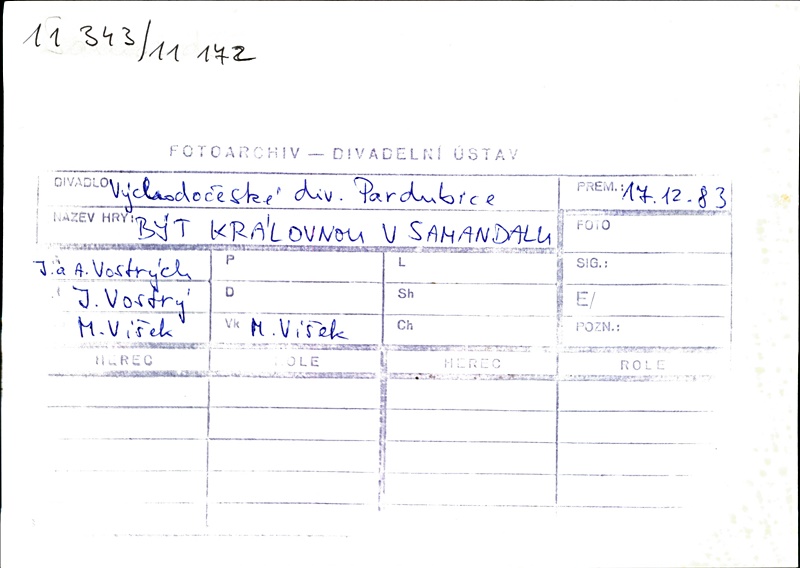 11 343/11 172
FOTOARCHIV — DIVADELNÍ ÚSTAV
DIVADLO Východočeské div. Pardubice PREM.: 17.12.83
NÁZEV HRY: BÝT KRÁLOVNOU V SAMANDALU FOTO
J. a A. Vostrých P L SIG.:
J. Vostrý D Sh E/
M. Víšek Vk M. Víšek Ch POZN.:
HEREC ROLE HEREC ROLE